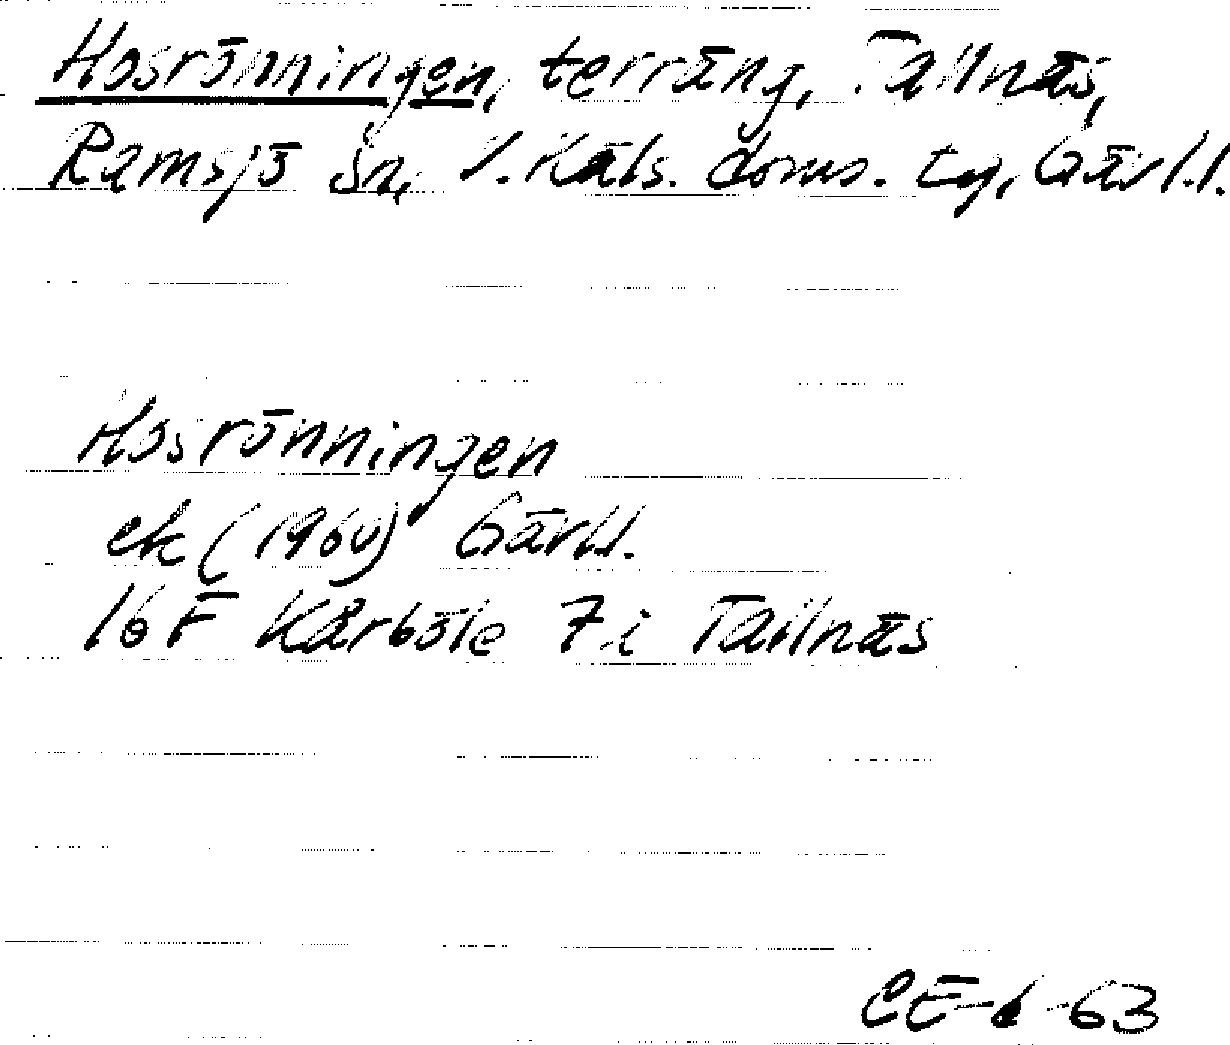 Hosrönningen, terräng, Tallnäs,
Ramsjö sn, V. Häls. doms. tg, Gävl.l.
Hosrönningen
ek (1960) Gävl.l.
16F Kårböle 7i Tallnäs
CE-6-63